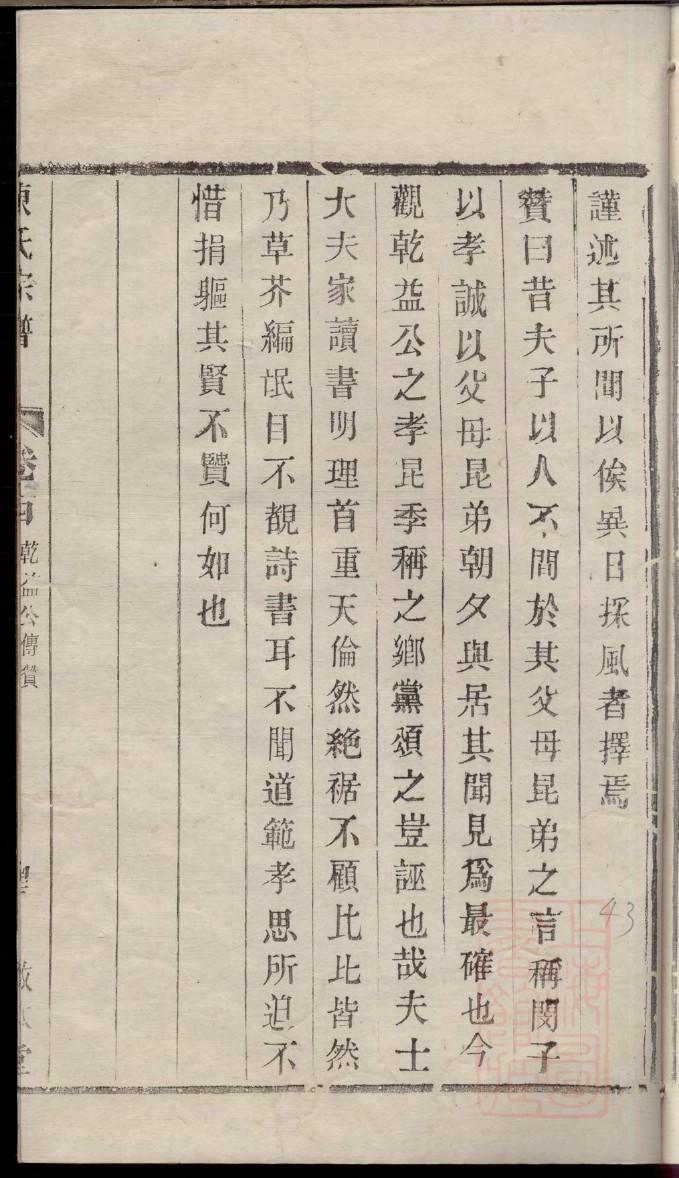 謹述其所聞以俟異日採風者擇焉
贊曰昔夫子以人不間於其父母昆弟之言稱閔子
以孝誠以父母昆弟朝夕與居其聞見爲最確也今
觀乾益公之孝昆季稱之鄉黨頌之豈誣也哉夫士
大夫家讀書明理首重天倫然絶裾不顧比比皆然
乃草芥編氓目不覩詩書耳不聞道範孝思所迫不
惜捐軀其賢不賢何如也
陳氏宗譜
乾益公傳贊
43